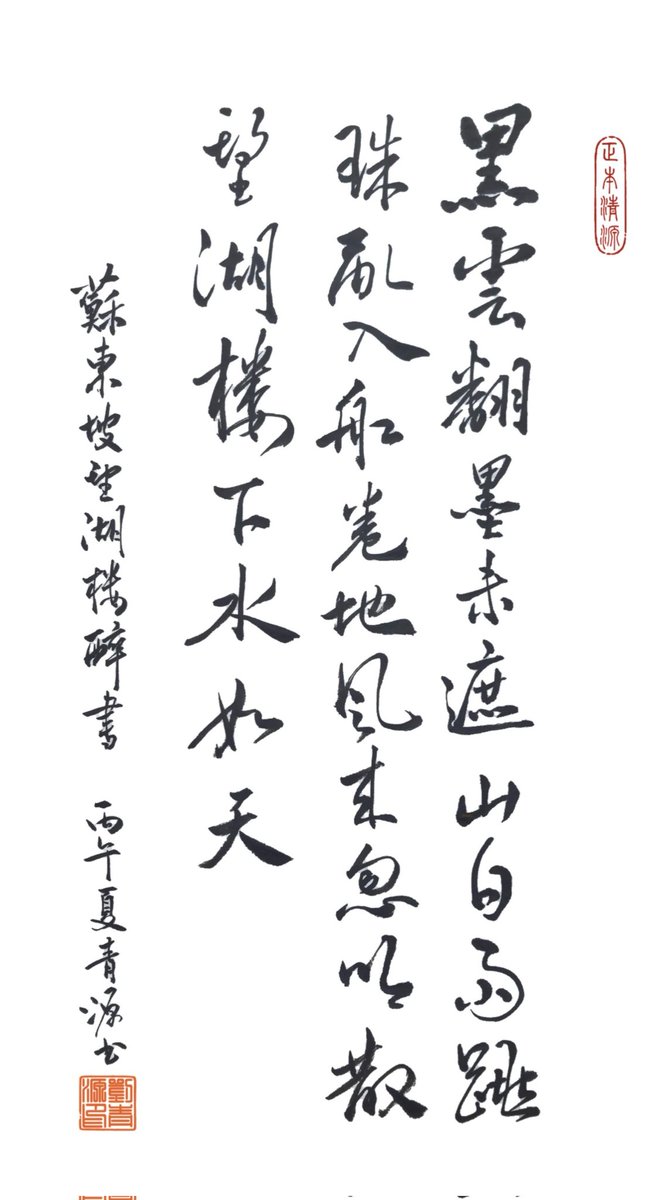 正本清源
黑雲翻墨未遮山白雨跳
珠亂入船卷地風来忽吹散
望湖楼下水如天
蘇東坡望湖楼醉書 丙午夏青源书
劉青源印